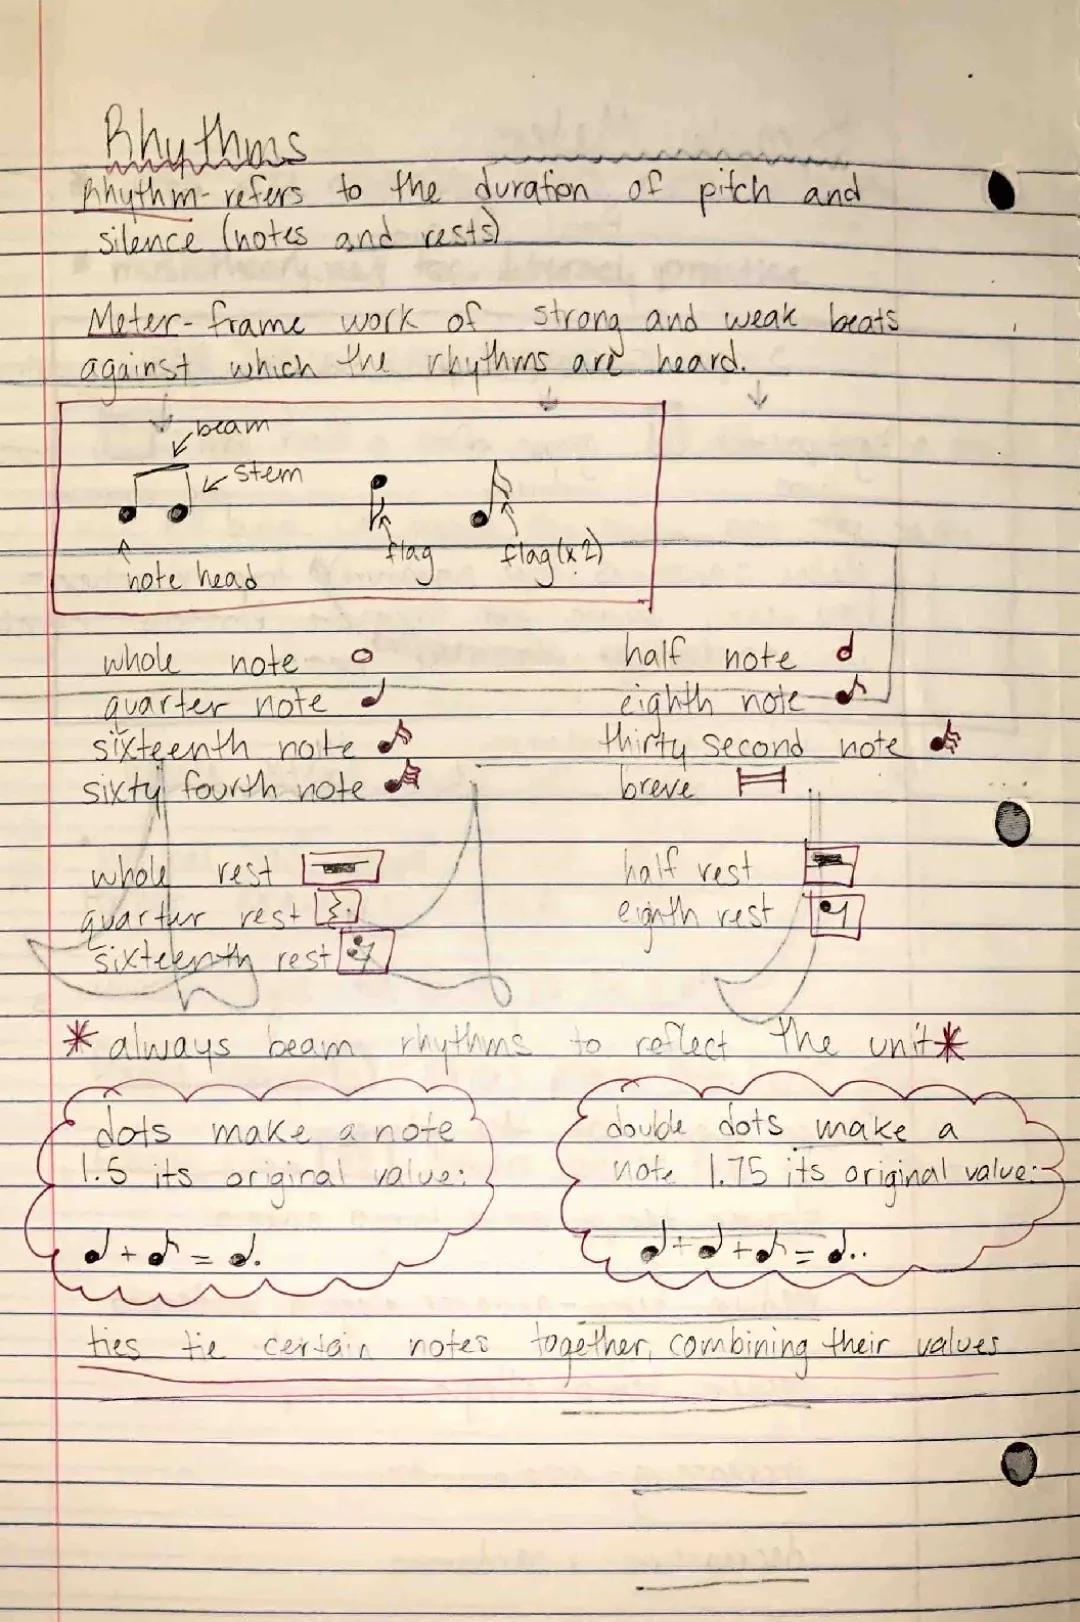 Rhythms
Rhythm- refers to the duration of pitch and
silence (notes and rests)
Meter- frame work of strong and weak beats
against which the rhythms are heard.
beam
stem
flag flag (x2)
note head
whole note half note
quarter note eighth note
sixteenth noite thirty second note
sixty fourth note breve
whole rest half rest
quarter rest eighth rest
sixteenth rest
*always beam rhythms to reflect the unit*
dots make a note
1.5 its original value:
♩ + ♪ = ♩.
double dots make a
note 1.75 its original value:
♩+♩+♪=♩..
ties tie certain notes together, combining their values